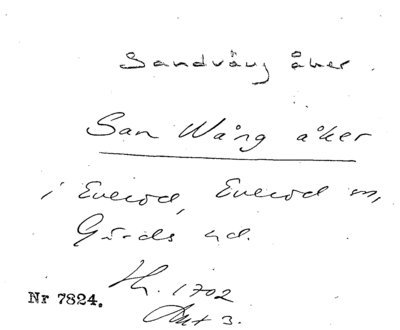 Sandvång åker.
San Wång åker
i Everöd, Everöd sn,
Gärds hd.
Lh. 1702
Ant 3.
Nr 7824.